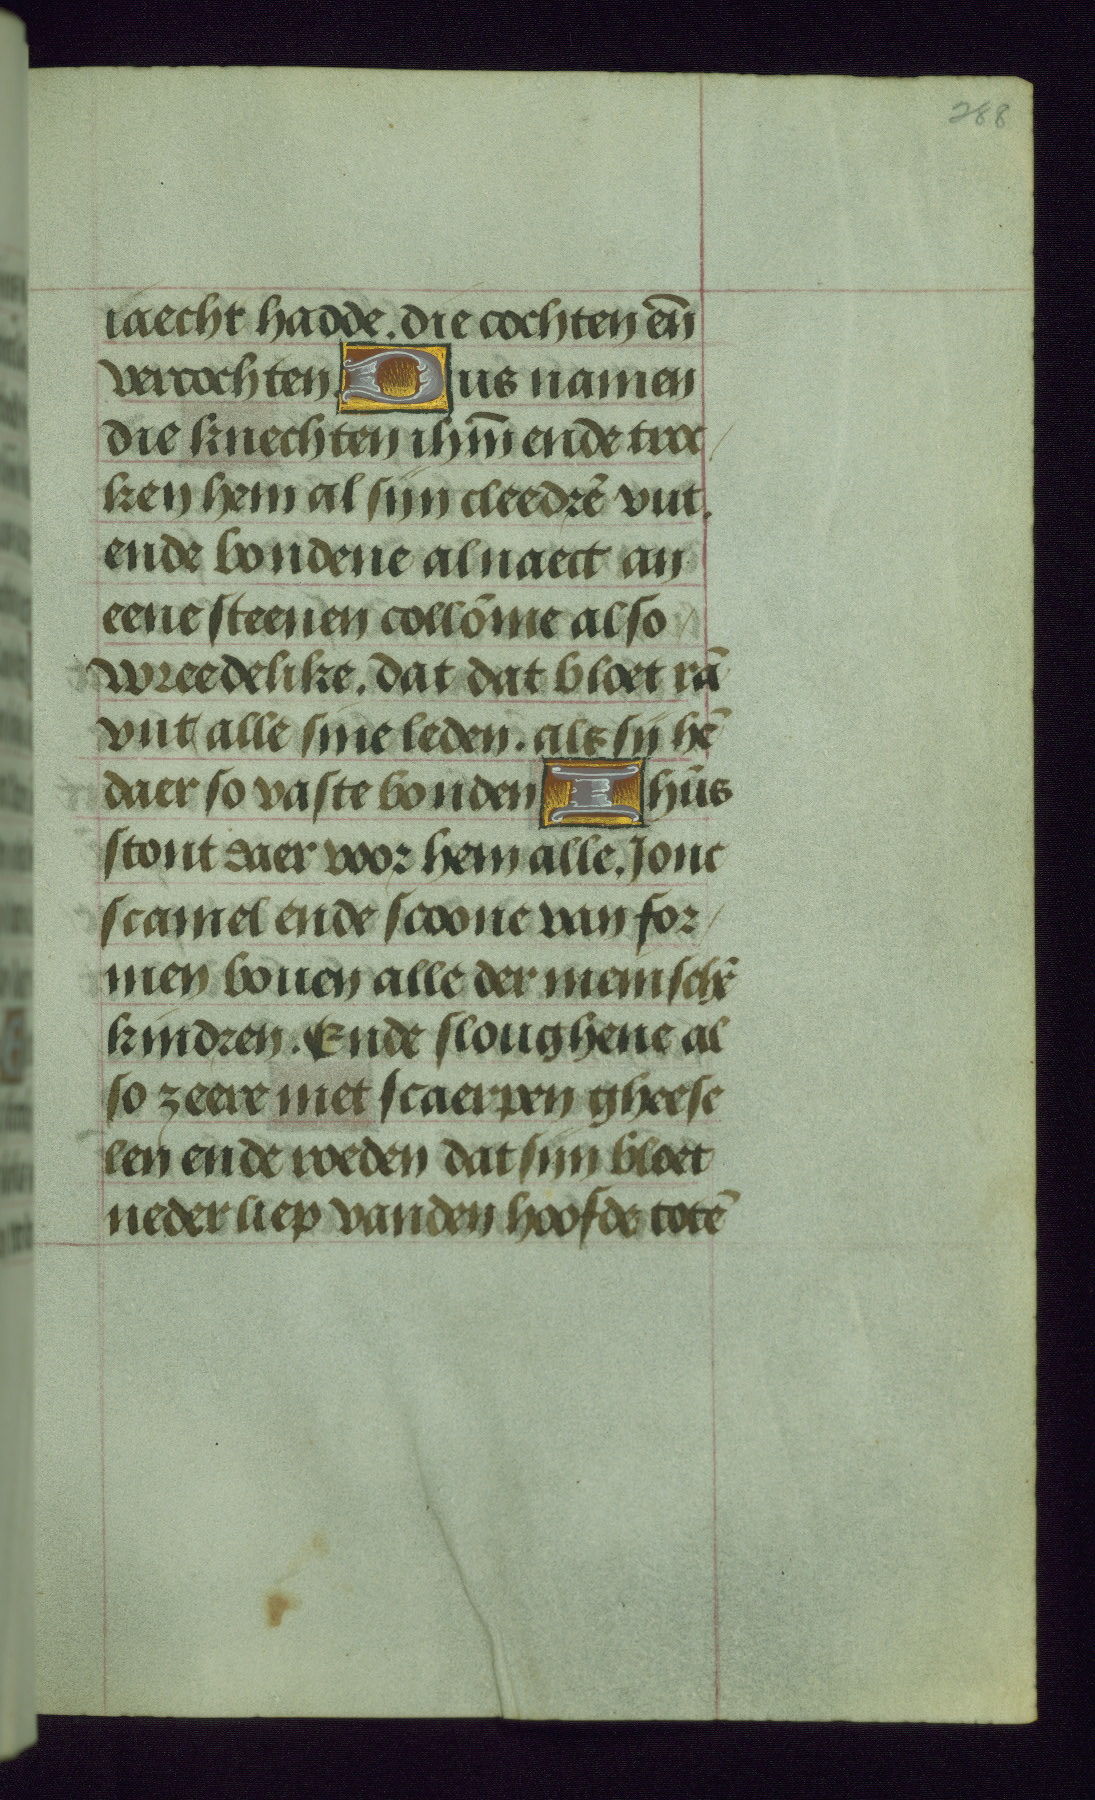 288
iaecht hadde. die cochten eñ
vercochten. Dus namen
die knechten ihm̄ ende troc/
ken hem al sijn cleedrē vut.
ende bondene al naect an
eene steenen collōme also
wreedelike. dat dat bloet rā
vut alle sine leden. als sij hē
daer so vaste bonden Ihūs
stont daer voor hem alle. Jonc
scamel ende scoone van for/
men bouen alle der menschē
kindren. Ende sloughene al
so zeere met scaerpen gheese
len ende roeden dat sijn bloet
neder liep vanden hoofde totē